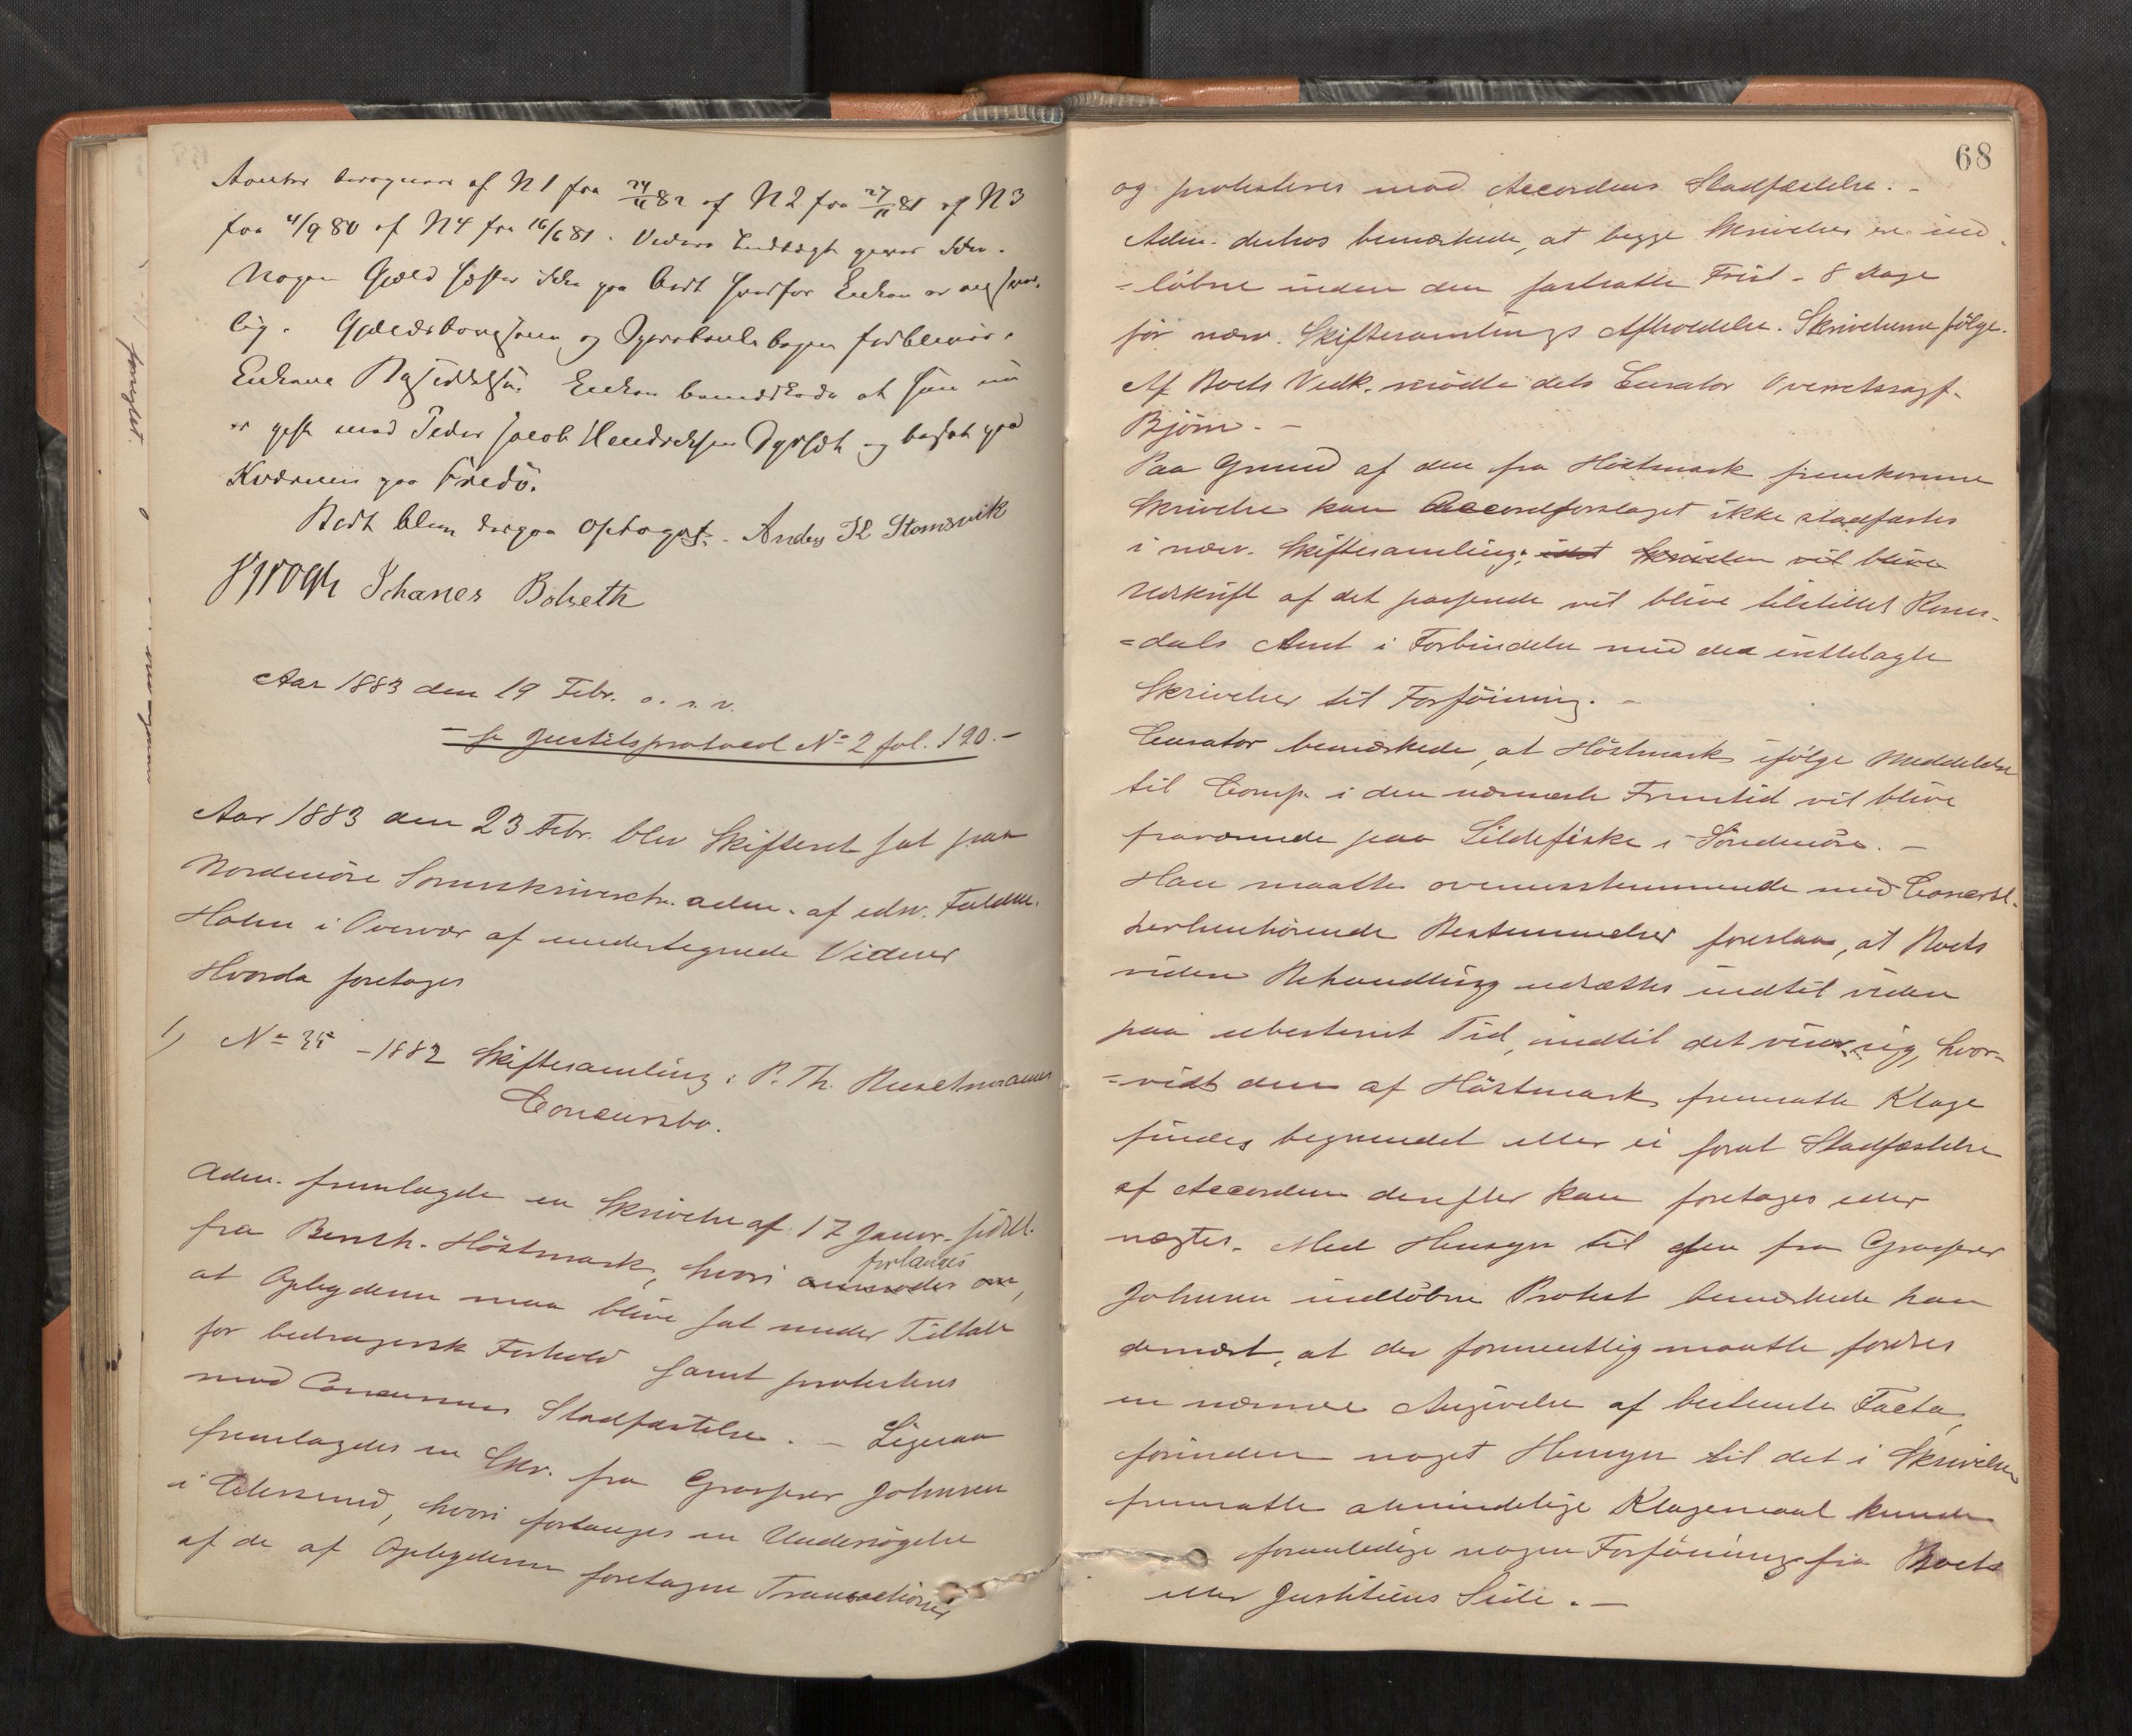 af N 1 fra 24/11 82 af N 2 fra 27/11 81 af N 3
fra 4/9 80 af N 4 fra 16/6 81. Videre Indtægt gives ikke.
Nogen Gjæld hæfter ikke paa Boet hvorfor Enken er ansvar-
lig. og forbliver i
Enkens Besiddelse. Enken bemærkede at hun nu
er gift med Peder Jacob Hendriksen og bosat paa
Kværnen paa Fredö.
Boet blev derpaa optaget. - Anders K Stomsvik
Krogh Johanes Bolseth
Aar 1883 den 19 Febr. o. s. v.
- se Justitsprotocol No 2 fol. 190. -
Aar 1883 den 23 Febr. blev Skifteret sat paa
Nordmöre Sorenskriverk. adm. af edsv. Fuldm.
Holm i Overvær af undertegnede Vidner
Hvorda foretoges
1) No 35 - 1882 Skiftesamling i P. Th. Buschmanns
Concursbo.
Adm. fremlagde en Skrivelse af 17 Januar sidstl.
fra Bensh. Höstmark, hvori anmodes om,
forlanges
at Opbyderen maa blive sat under Tiltale
for bedragersk Forhold samt protesteres
mod Stadfæstelse. - Ligesaa
fremlagdes en Skr. fra Grosserer Johnsen
i Aalesund, hvori forlanges en Undersögelse
af de af Opbyderen foretagne Transactioner
68
og protesteres mod Accordens Stadfæstelse. -
Adm. derhos bemærkede, at begge Skrivelser ere ind-
=löbne inden den fastsatte Frist - 8 Dage
för nærv. Skiftesamlings Afholdelse. Skrivelserne fölge.
Af Boets Vedk. mödte dets Curator Overretssagf.
Björn. -
Paa Grund af den fra Höstmark fremkomne
Skrivelse kan Accordforslaget ikke stadfæstes
i nærv. Skiftesamling; idet Skrivelsen vil blive
Udskrift af det passerede vil blive tilstillet Roms-
=dals Amt i Forbindelse med de indlagte
Skrivelser til Forföining. -
Curator bemærkede, at Höstmark ifölge Meddelelse
til Comp. i den nærmeste Fremtid vil blive
fraværende paa Sildefiske i Söndmöre. -
Han maatte overensstemmende med Concursl.
herhenhörende Bestemmelser foreslaa, at Boets
videre Behandling udsættes indtil videre
paa ubestemt Tid, indtil det viser sig, hvor-
=vidt den af Höstmark fremsatte Klage
findes begrundet eller ei forat Stadfæstelse
af Accorden derefter kan foretages eller
nægtes. Med Hensyn til den fra Grosserer
Johnsen indlöbne Protest bemærkede han
dernæst, at der formentlig maatte fordres
en nærmere Angivelse af bestemte Facta,
forinden noget Hensyn til det i Skrivelsen
fremsatte almindelige Klagemaal kunde
foranledige nogen Forföining fra Boets
eller Justitiens Side. -